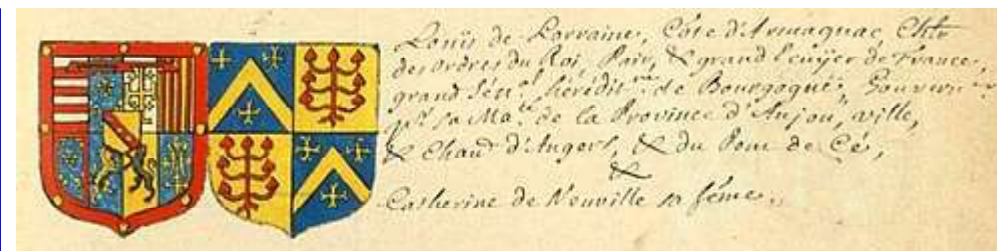 Louis de Lorraine, Cõte d'Armagnac Chlr
des ordres du Roi, Pair, & grand Ecuÿer de France,
grand Sén.al hérédit.re de Bourgogne, Gouvern.r
p.r sa Ma.té de la Province d'Anjou, ville,
& Chau d'Angers, & du Pont de Cé,
&
Catherine de Neuville sa fẽme.